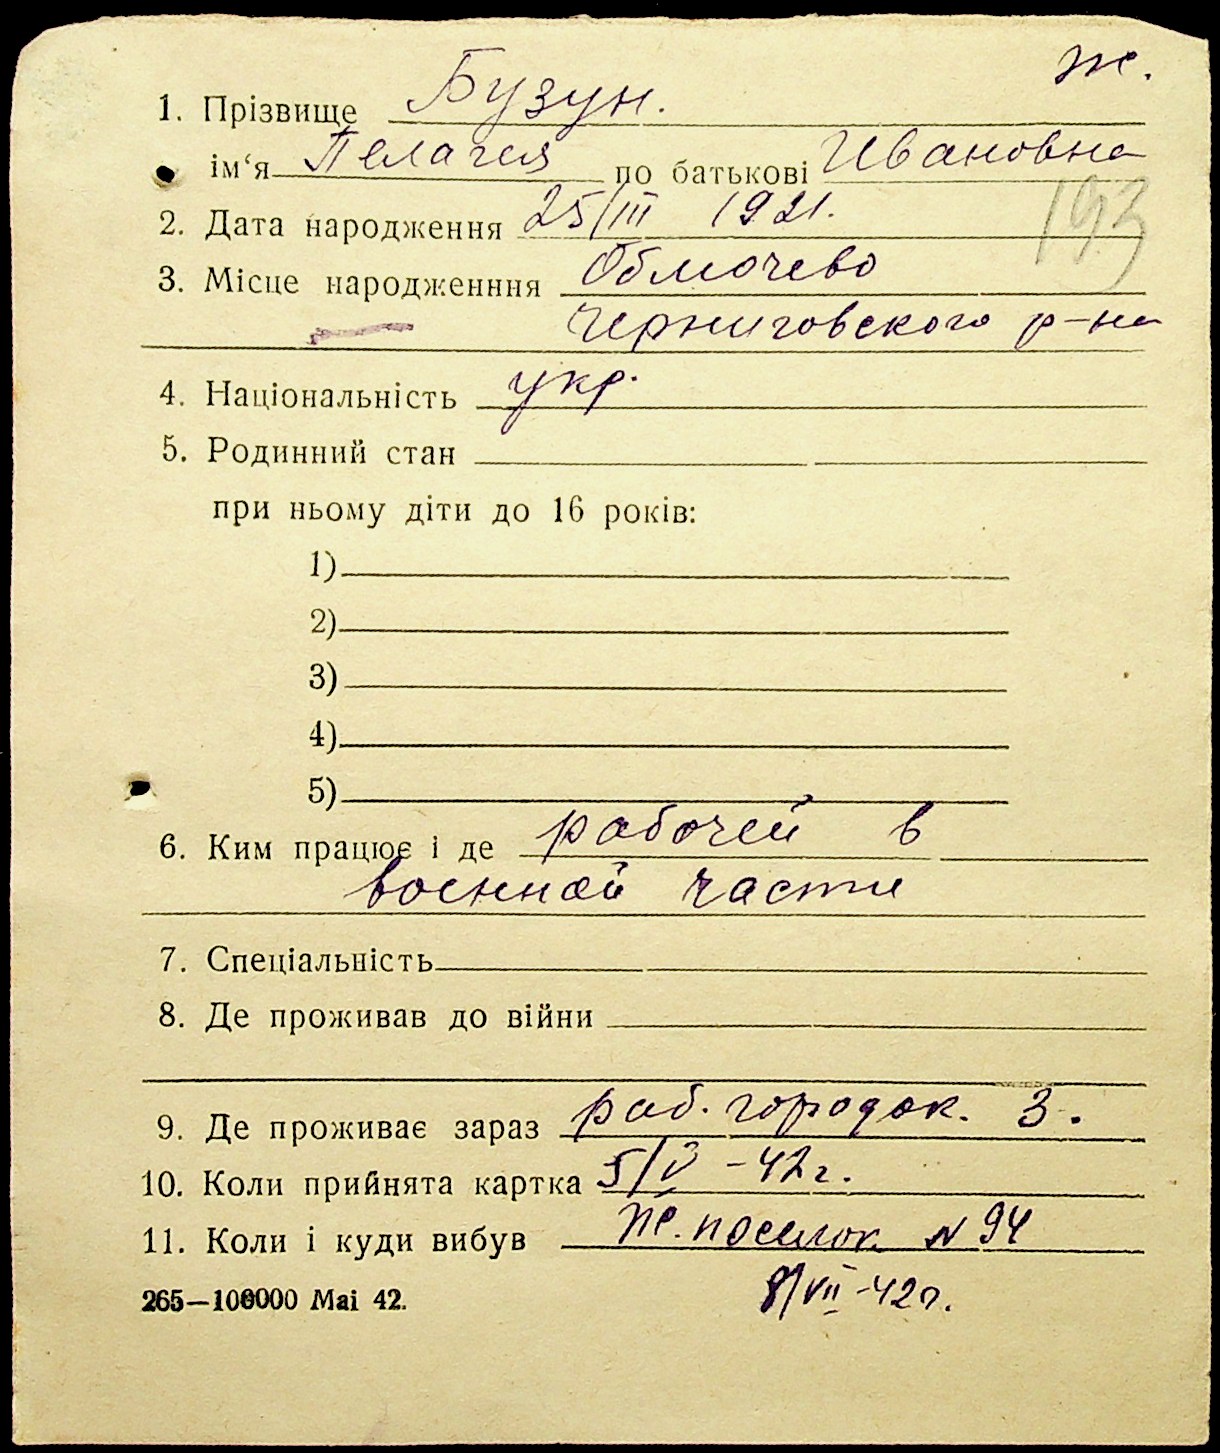 ж.
1. Прізвище Бузун.
ім‘я Пелагея по батькові Ивановна
2. Дата народження 25/III 1921.
193
3. Місце народженння Обмочево
Черниговского р-на
4. Національність укр.
5. Родинний стан
при ньому діти до 16 років:
1)
2)
3)
4)
5)
6. Ким працює і де рабочей в
военной части
7. Спеціальність
8. Де проживав до війни
9. Де проживає зараз раб. городок. 3.
10. Коли прийнята картка 5/V -42 г.
11. Коли і куди вибув Ж. поселок N 94
265—100000 Mai 42. 8/VII -42 г.